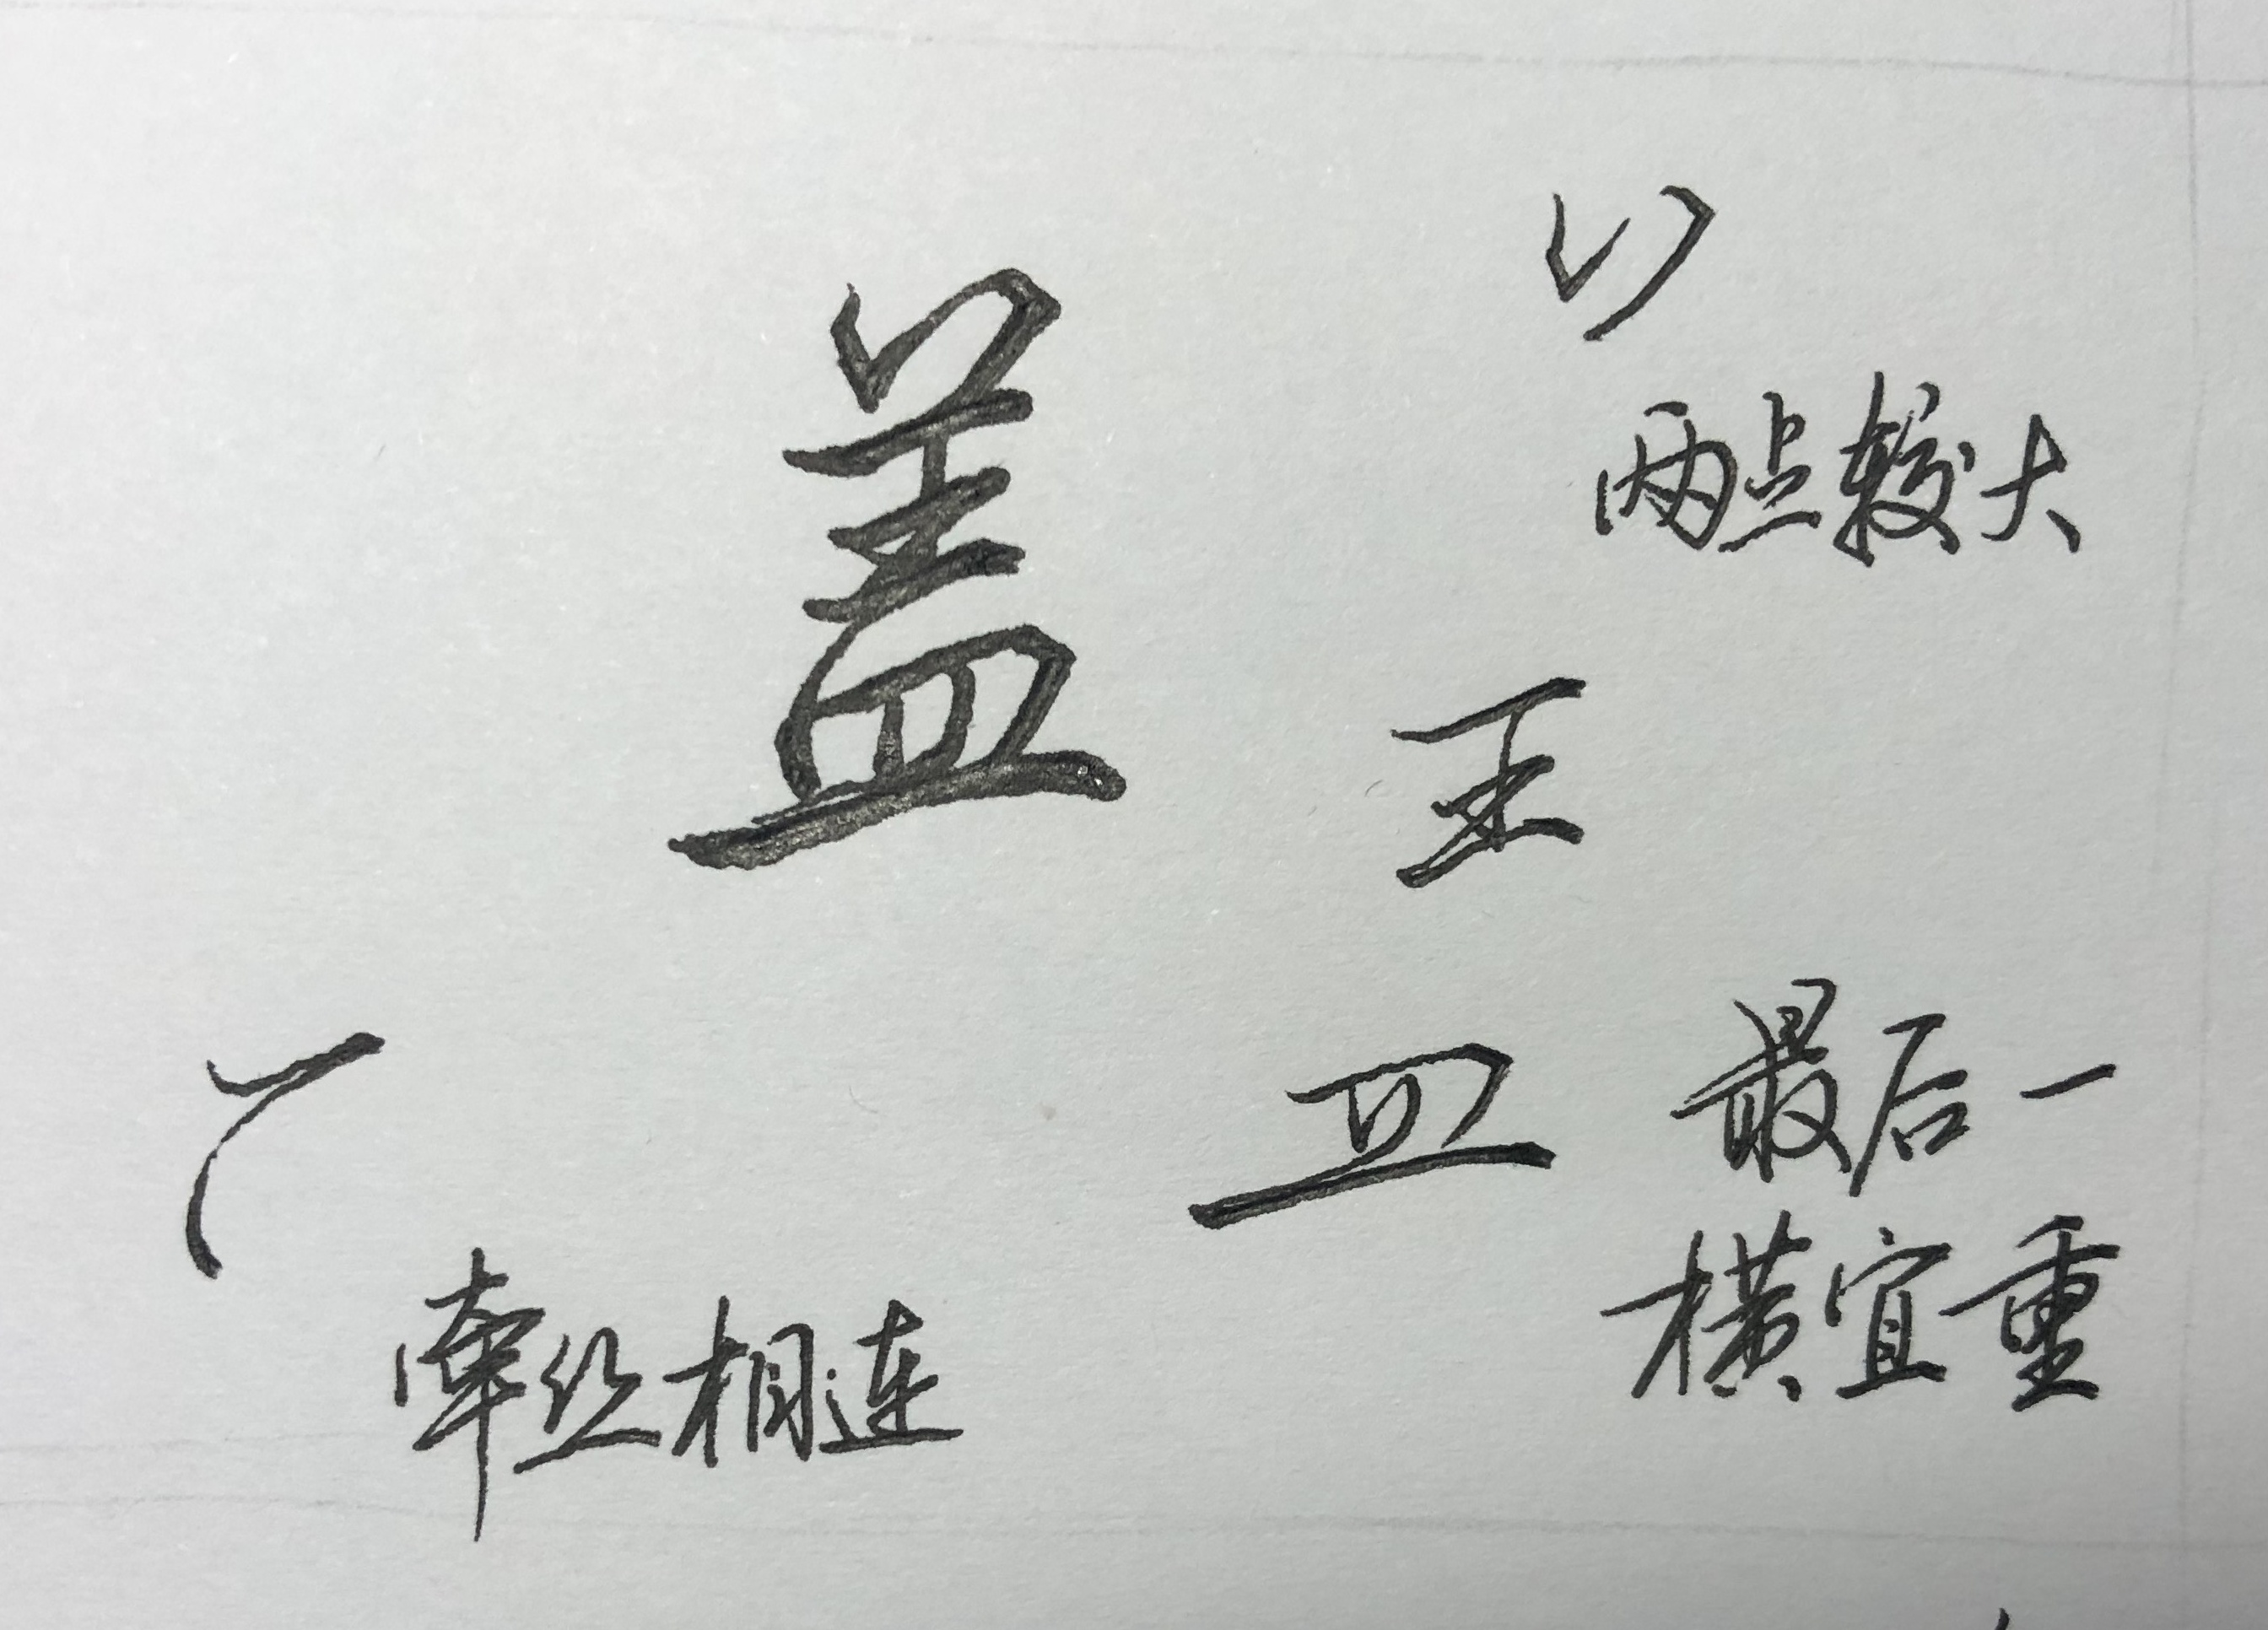 盖
丷
两点较大
王
皿
最后一
横宜重
牵丝相连